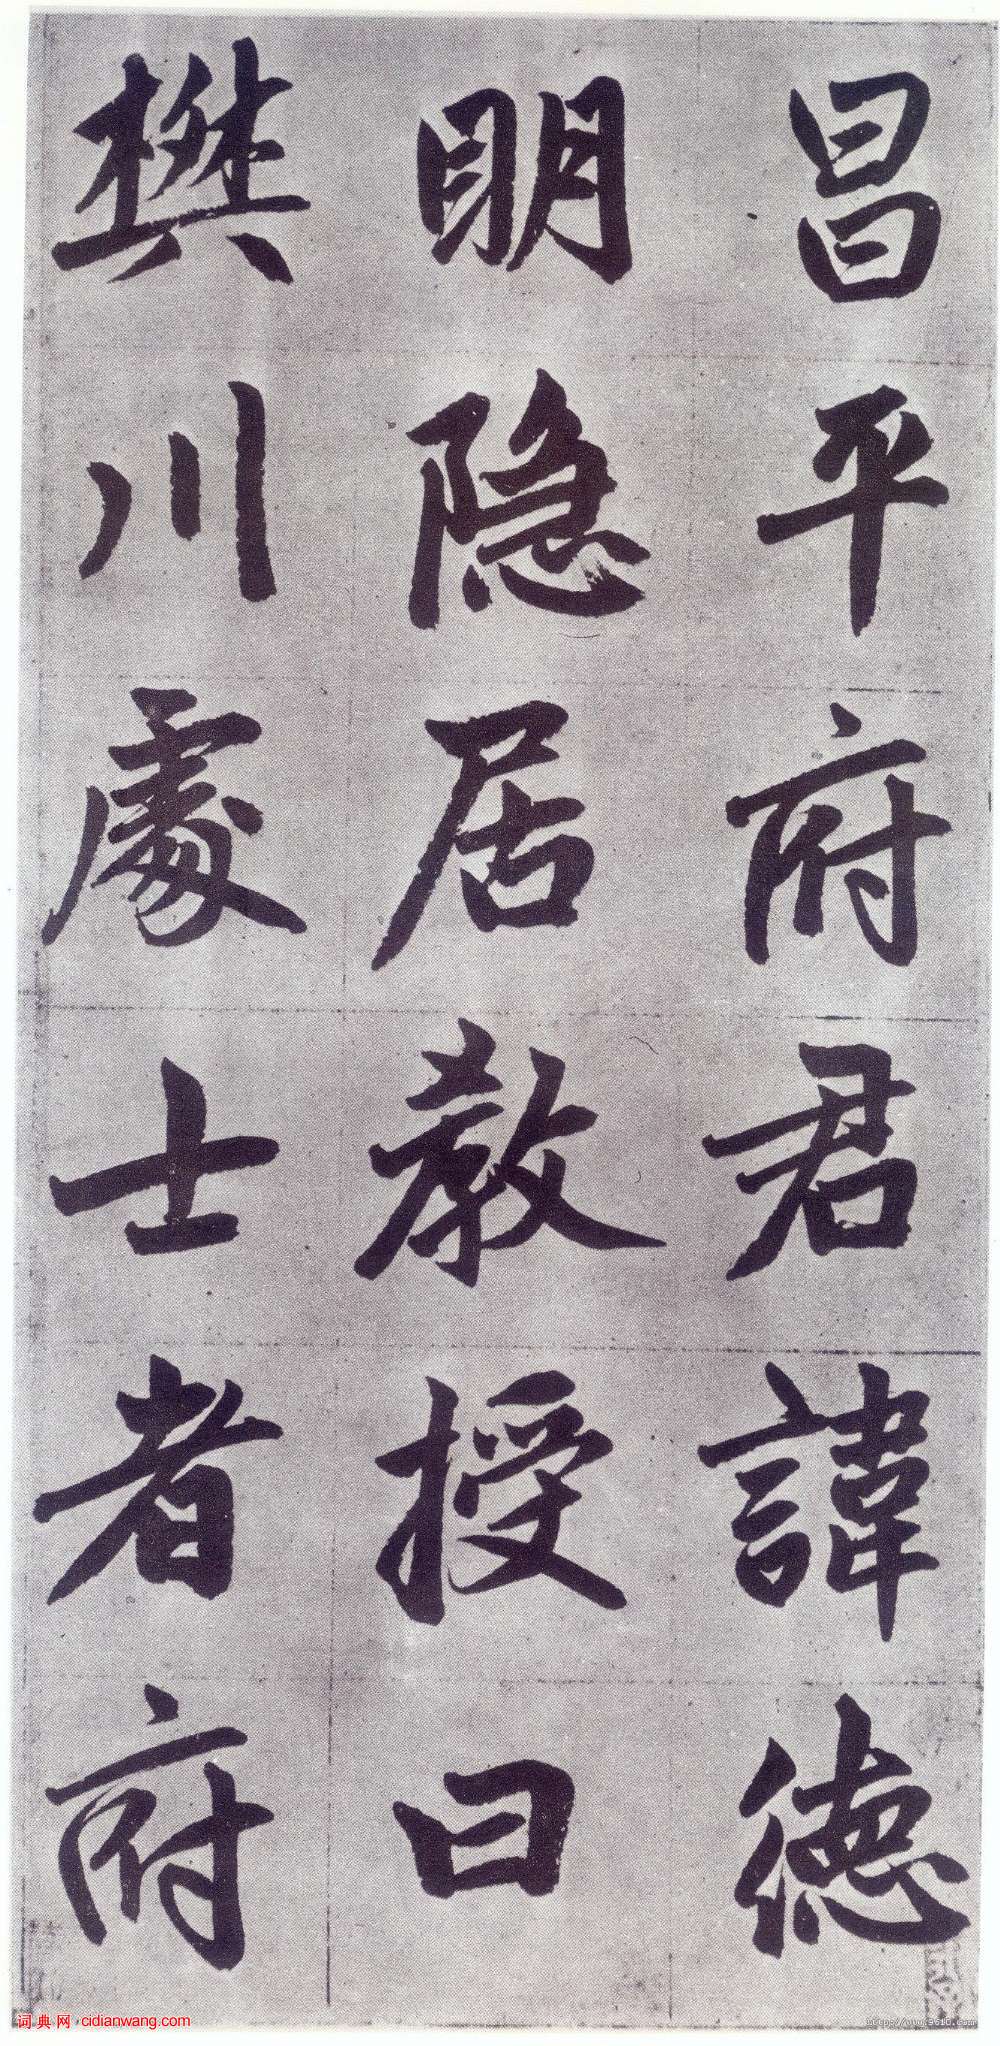 昌平府君諱德
明隐居教授曰
樊川處士者府
词典网 cidianwang.com
http://www.9610.com